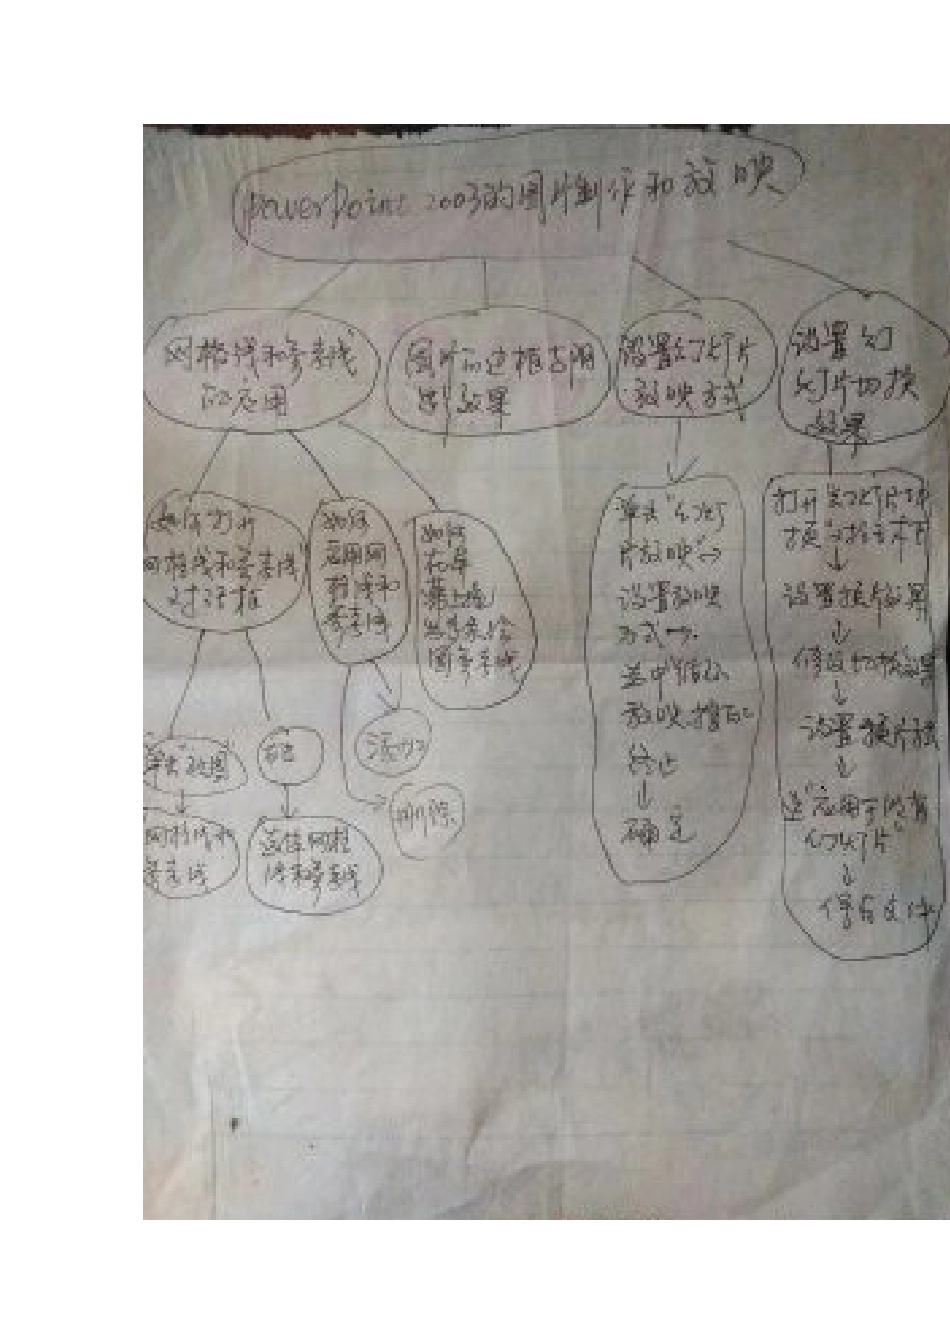 PowerPoint 2003的图片制作和放映
网格线和参考线
的应用
图片的边框与阴
影效果
设置幻灯片
放映方式
设置幻
灯片切换
效果
如何打开
网格线和参考线
对话框
如何
应用网
格线和
参考线
如何
在屏
幕上
图参考线
单击"幻灯
片放映"→
设置放映
方式→
选中"循环
放映
终止
↓
确定
打开"幻灯片切
换"
↓
设置换片效果
↓
修改切换效果
↓
设置换片
↓
选"应用于所有
幻灯片"
↓
保存文件
单击视图
右击
添加
删除
网格线和
参考线
选择网格
线和参考线